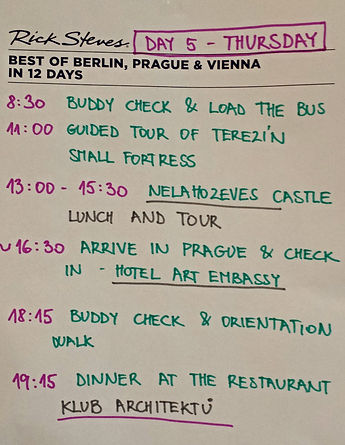 Rick Steves. DAY 5 - THURSDAY
BEST OF BERLIN, PRAGUE & VIENNA
IN 12 DAYS
8:30 BUDDY CHECK & LOAD THE BUS
11:00 GUIDED TOUR OF TEREZÍN
SMALL FORTRESS
13:00 - 15:30 NELAHOZEVES CASTLE
LUNCH AND TOUR
~16:30 ARRIVE IN PRAGUE & CHECK
IN - HOTEL ART EMBASSY
18:15 BUDDY CHECK & ORIENTATION
WALK
19:15 DINNER AT THE RESTAURANT
KLUB ARCHITEKTŮ